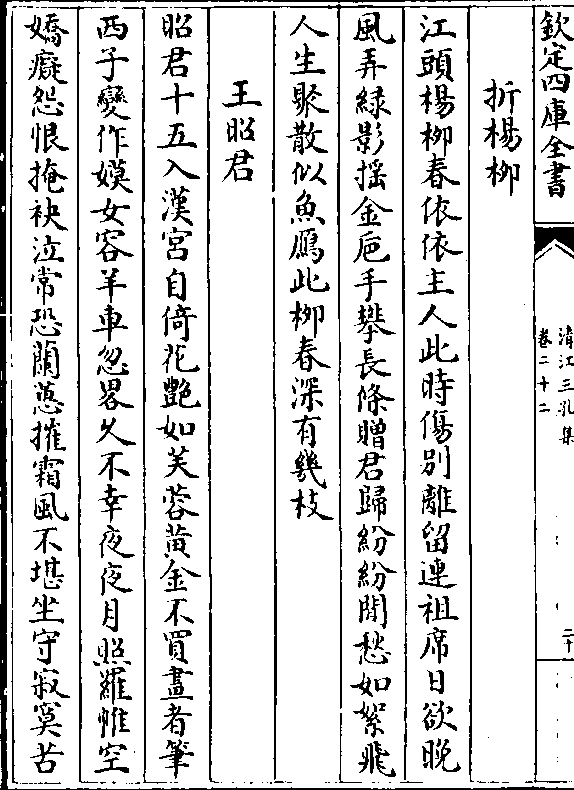 欽定四庫全書
清江三孔集
卷二十二
二十
折楊柳
江頭楊柳春依依主人此時傷別離留連祖席日欲晚
風弄緑影揺金巵手攀長條贈君歸紛紛閒愁如絮飛
人生聚散似魚鴈此柳春深有幾枝
王昭君
昭君十五入漢宮自倚花艷如芙蓉黄金不買畫者筆
西子變作嫫女容羊車忽畧久不幸夜夜月照羅帷空
嬌癡怨恨掩袂泣常恐蘭蕙摧霜風不堪坐守寂寞苦